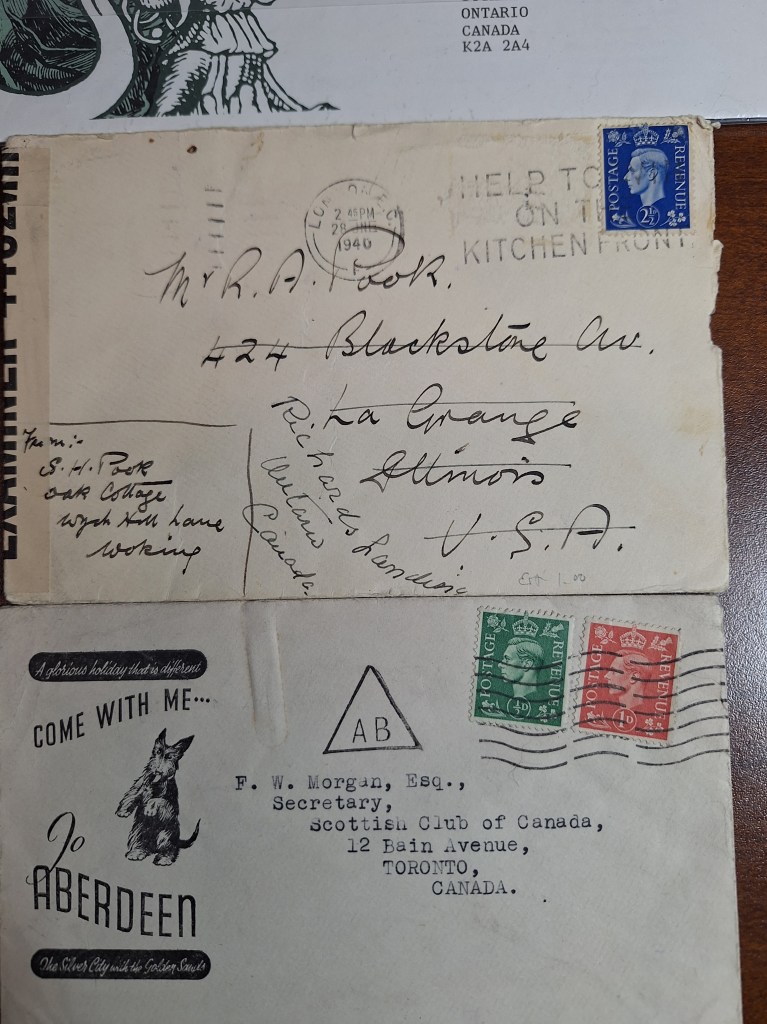 ONTARIO
CANADA
K2A 2A4
EXAMINER
LONDON E.C
2 45 PM
28
1940
HELP TO
ON THE
KITCHEN FRONT
POSTAGE REVENUE
2½D
Mr R. A. Pook.
424 Blackstone Av.
La Grange
Illinois
U. S. A.
Richards Landing
Ontario
Canada.
From:-
S. H. Pook
Oak Cottage
Wych Hill Lane
Woking
A glorious holiday that is different
COME WITH ME...
To
ABERDEEN
The Silver City with the Golden Sands
AB
POSTAGE REVENUE
½D
POSTAGE REVENUE
1D
F. W. Morgan, Esq.,
Secretary,
Scottish Club of Canada,
12 Bain Avenue,
TORONTO,
CANADA.